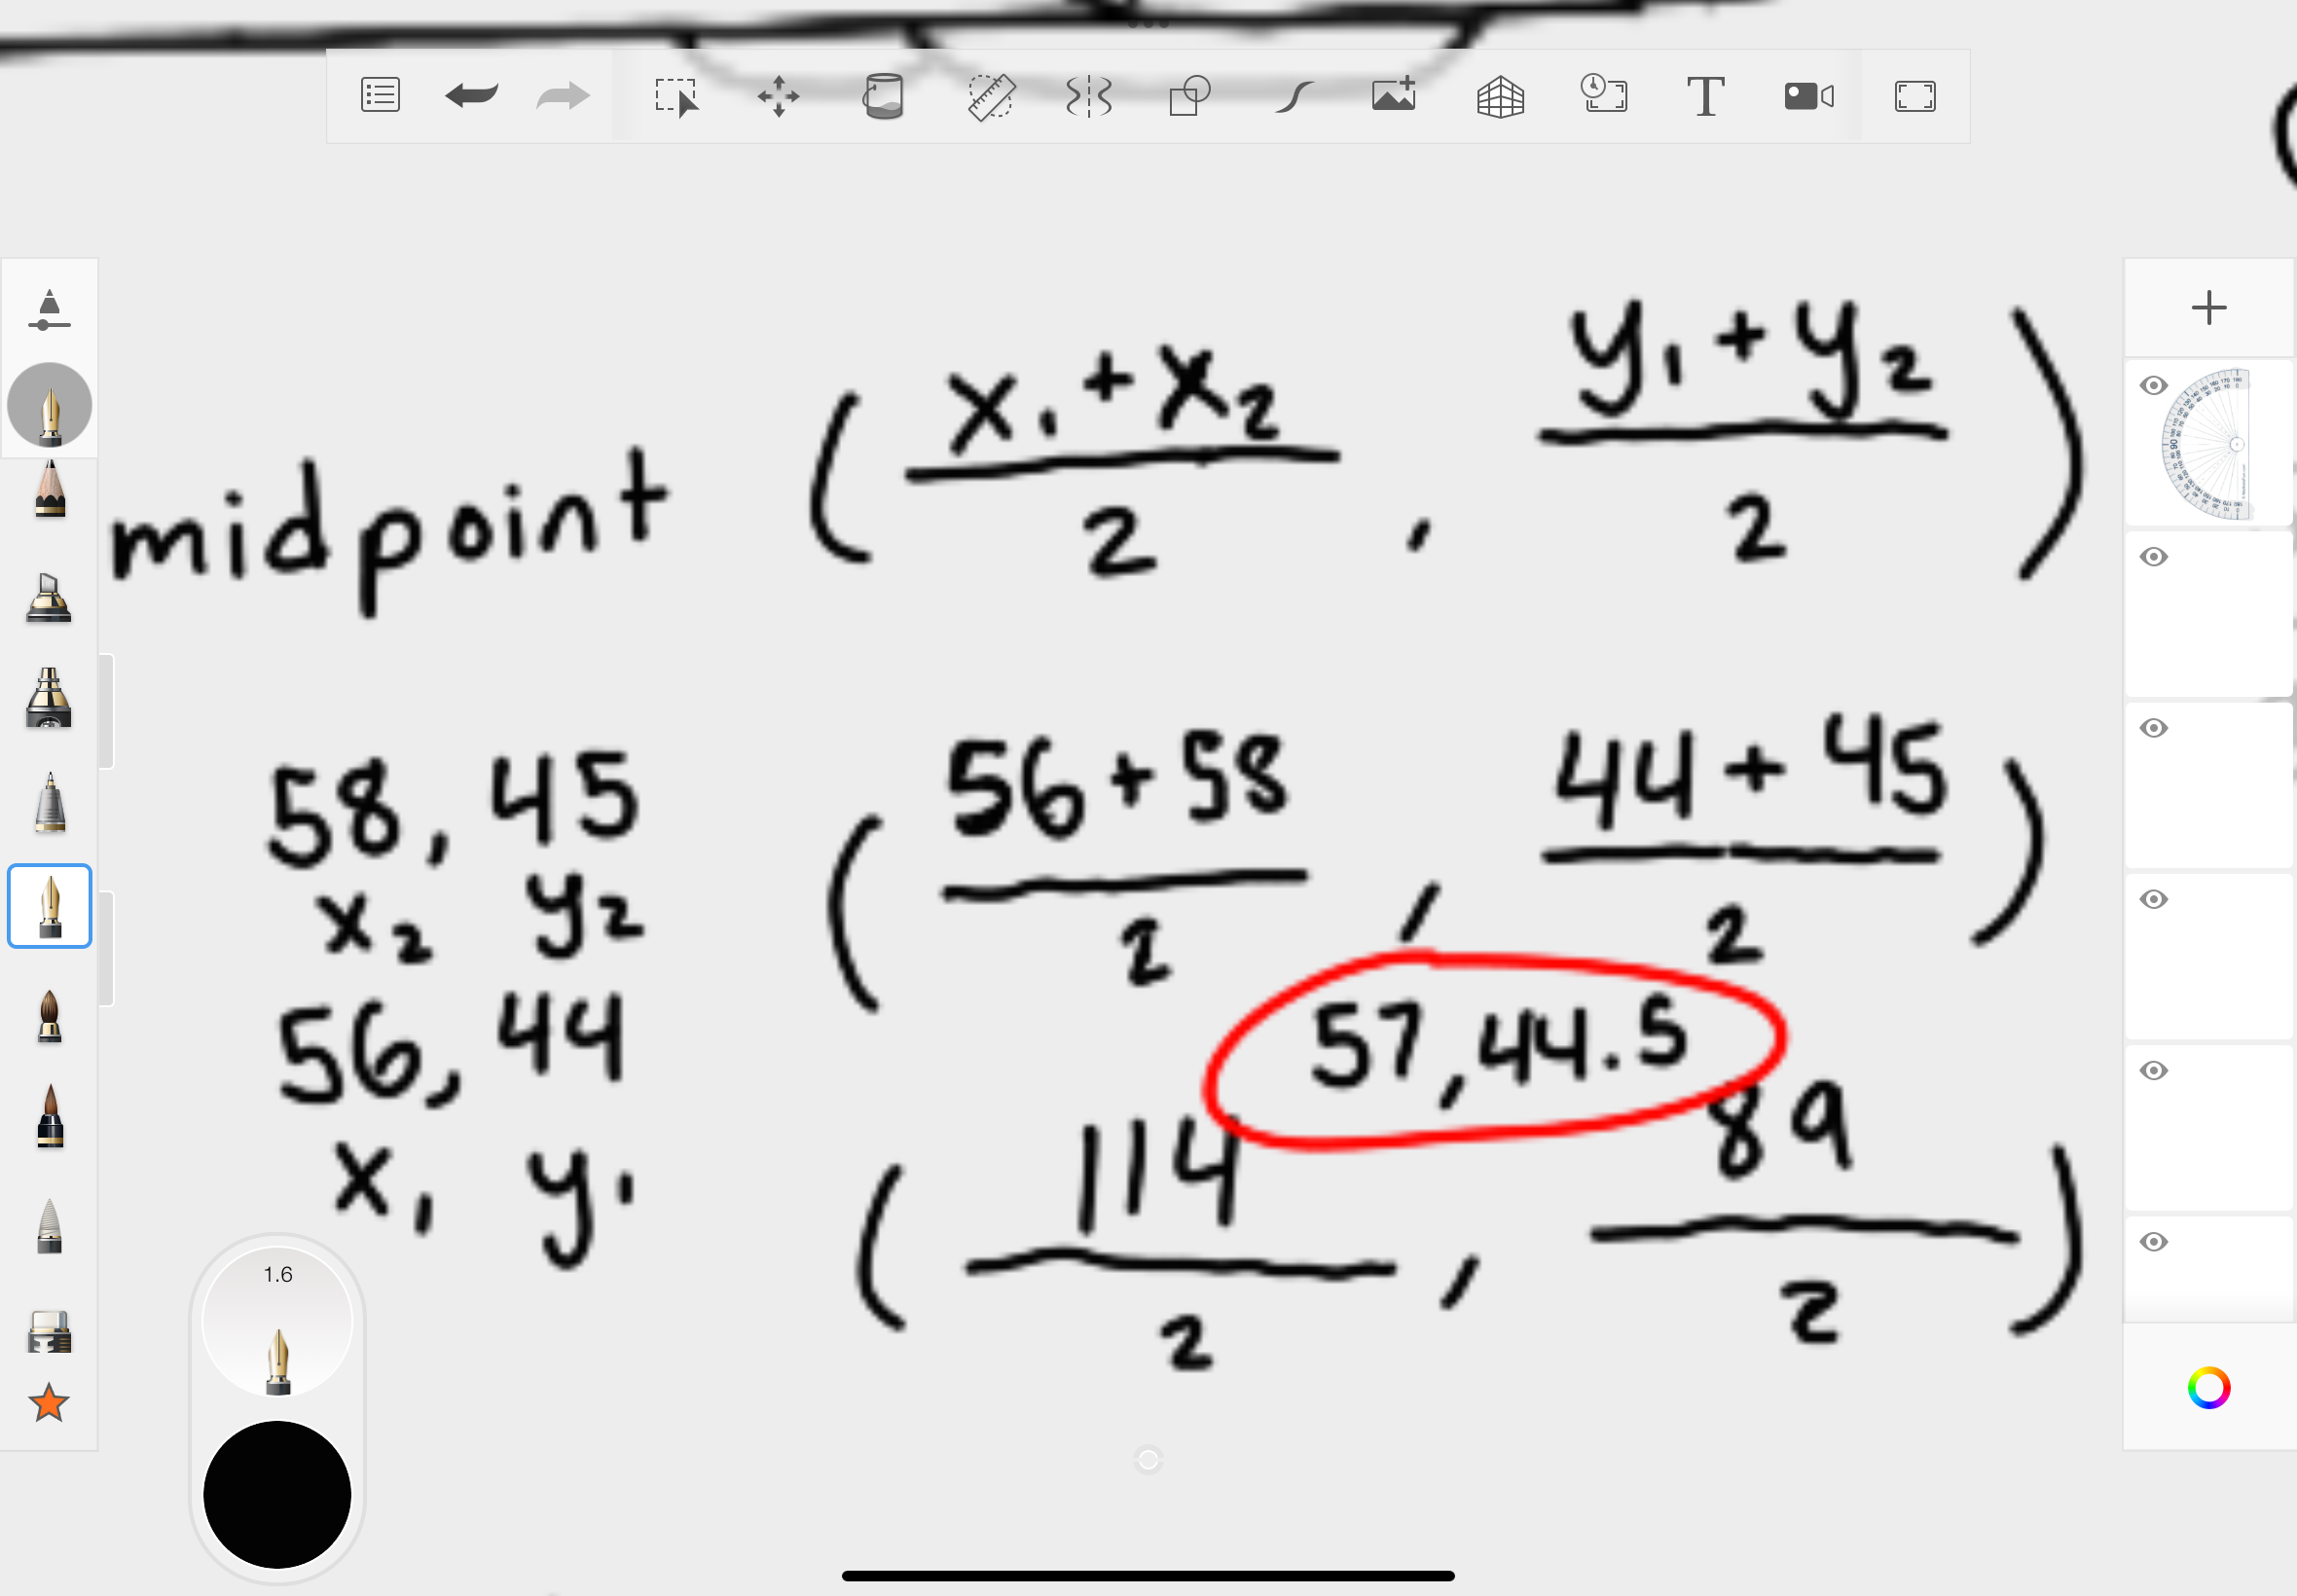 T
midpoint ( x₁ + x₂ / 2 , y₁ + y₂ / 2 )
58, 45
x₂ y₂
56, 44
x₁ y₁
( 56 + 58 / 2 , 44 + 45 / 2 )
57, 44.5
( 114 / 2 , 89 / 2 )
1.6